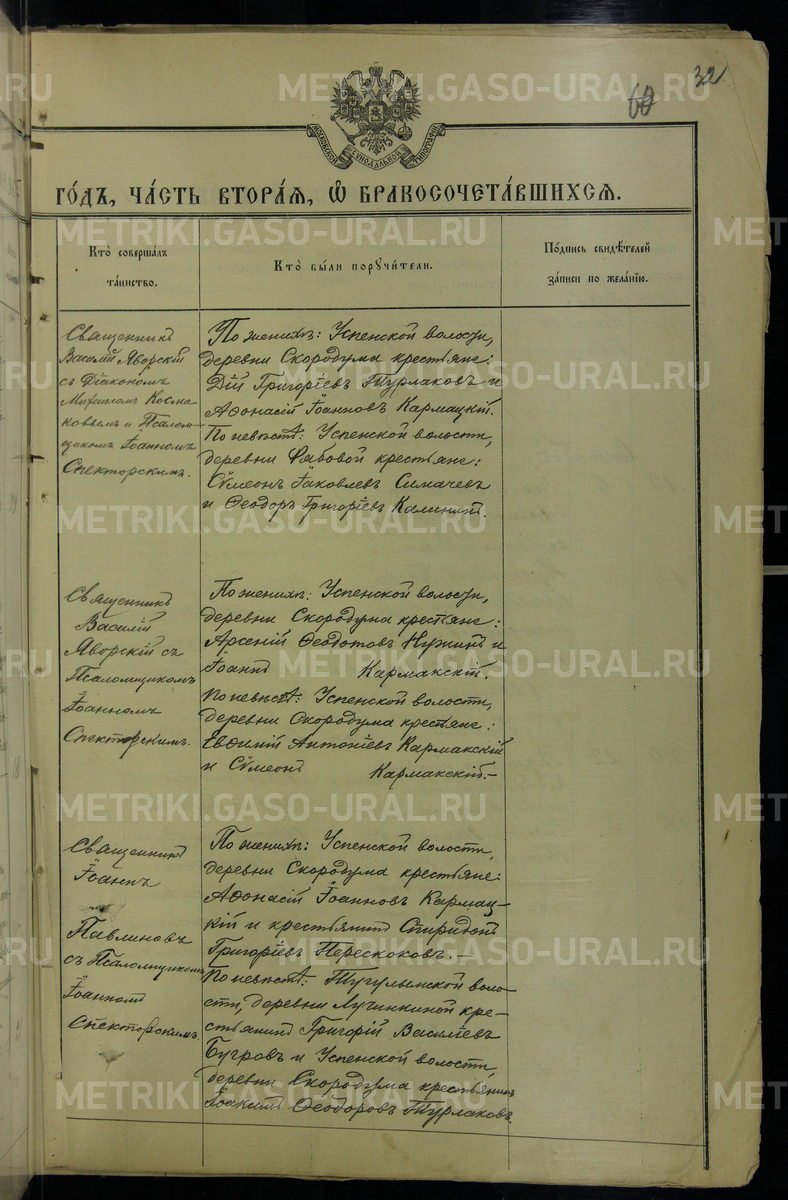 32
60
МОСКОВСКОЙ СѴНОДАЛЬНОЙ ТИПОГРАФІИ
ГО́ДЪ, ЧА́СТЬ ВТОРА́Я, Ѽ БРАКОСОЧЕТА́ВШИХСЯ.
Кто̀ соверша́лъ
та́инство.
Кто̀ бы́ли поручи́тели.
По́дпись свидѣ́телей
за́писи по жела́нїю.
Священникъ
Василій Яворскій
съ Діакономъ
Михаиломъ Косма-
ковымъ и Псалом-
щикомъ Іоанномъ
Спекторскимъ.
По женихѣ: Успенской волости,
деревни Скородума крестьяне:
Дій Григоріевъ Турлаковъ и
Аѳонасій Іоанновъ Кармацкій.
По невѣстѣ: Успенской волости,
деревни Рябовой крестьяне:
Сѵмеонъ Іаковлевъ Симачевъ
и Ѳеодоръ Григоріевъ Калининъ.
Священникъ
Василій
Яворскій съ
Псаломщикомъ
Іоанномъ
Спекторскимъ.
По женихѣ: Успенской волости,
деревни Скородума крестьяне:
Арсеній Ѳеодотовъ Нужинъ и
Іоаннъ Кармакскій.
По невѣстѣ: Успенской волости,
деревни Скородума крестьяне:
Евѳимій Антоніевъ Кармакскій
и Сѵмеонъ Кармакскій.-
Священникъ
Іоаннъ
Павлиновъ
съ Псаломщикомъ
Іоанномъ
Спекторскимъ.
По женихѣ: Успенской волости,
деревни Скородума крестьяне:
Аѳонасій Іоанновъ Кармац-
кій и крестьянинъ Спиридонъ
Григоріевъ Перескоковъ.-
По невѣстѣ: Тугулымской воло-
сти, деревни Лучинкиной кре-
стьянинъ Григорій Василіевъ
Бугровъ и Успенской волости,
деревни Скородума крестьянинъ
Іоакимъ Ѳеодоровъ Турлаковъ.
METRIKI.GASO-URAL.RU